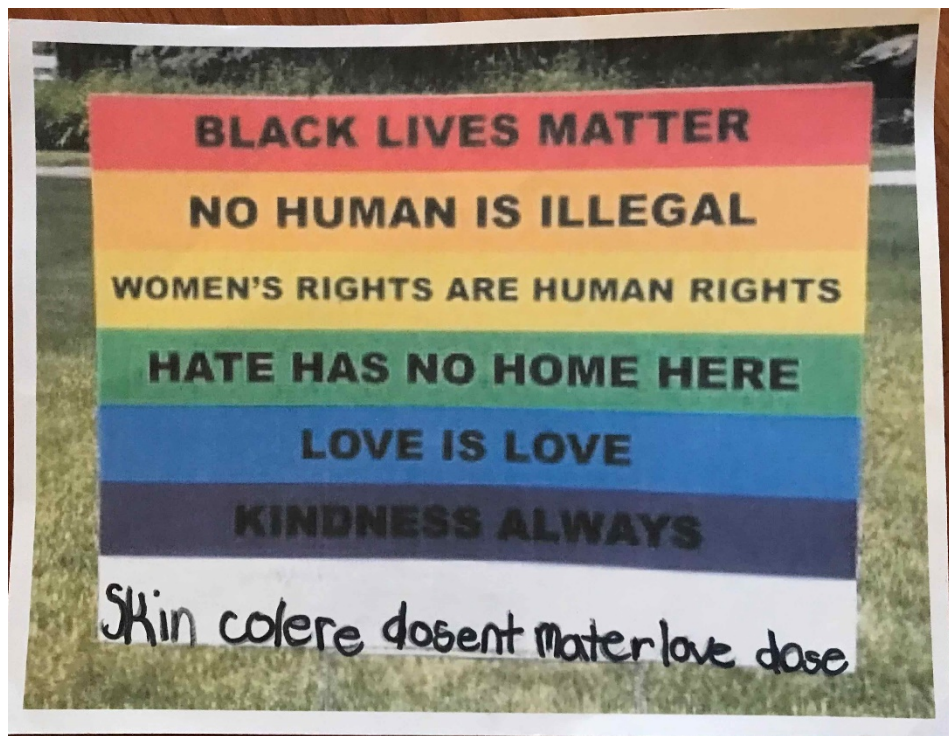 BLACK LIVES MATTER
NO HUMAN IS ILLEGAL
WOMEN'S RIGHTS ARE HUMAN RIGHTS
HATE HAS NO HOME HERE
LOVE IS LOVE
KINDNESS ALWAYS
Skin colere dosent mater love dose